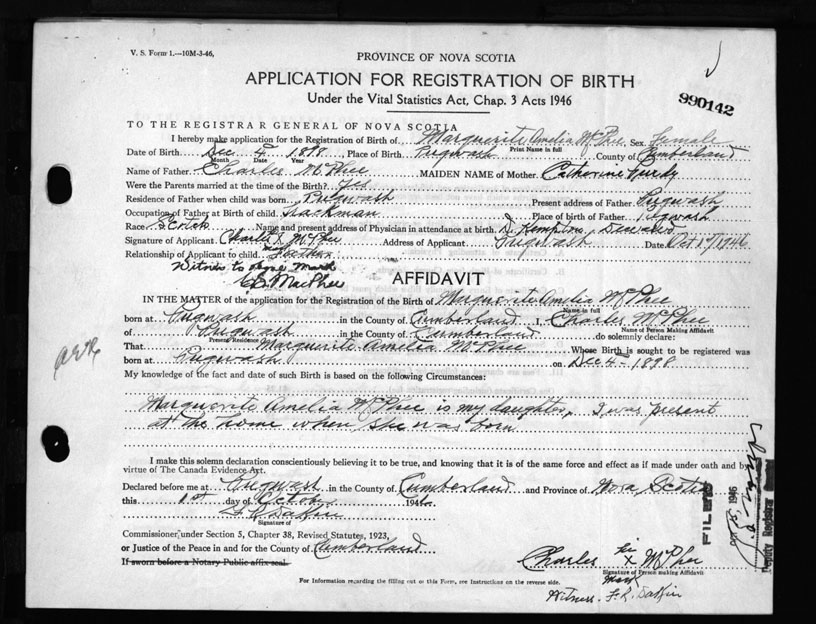 V. S. Form 1.—10M-3-46,
PROVINCE OF NOVA SCOTIA
APPLICATION FOR REGISTRATION OF BIRTH
Under the Vital Statistics Act, Chap. 3 Acts 1946
990142
TO THE REGISTRAR GENERAL OF NOVA SCOTIA
I hereby make application for the Registration of Birth of Marguerite Amelia McPhee Sex Female
Print Name in full
Date of Birth Dec 4 1898, Place of Birth Pugwash County of Cumberland
Month Date Year
Name of Father Charles McPhee MAIDEN NAME of Mother Catherine
Were the Parents married at the time of the Birth? Yes
Residence of Father when child was born Pugwash Present address of Father Pugwash
Occupation of Father at Birth of child Place of Birth of Father Pugwash
Race Scotch Name and present address of Physician in attendance at birth D. Kempton, Deceased
Signature of Applicant Charles X McPhee Address of Applicant Pugwash Date Oct 1st/1946
mark
Relationship of Applicant to child Father
Witness to above mark
C.B. MacPhee
AFFIDAVIT
IN THE MATTER of the application for the Registration of the Birth of Marguerite Amelia McPhee
Name in full
born at Pugwash in the County of Cumberland I, Charles McPhee
Name of Person Making Affidavit
of Pugwash in the County of Cumberland do solemnly declare:
Present Residence
That Marguerite Amelia McPhee Whose Birth is sought to be registered was
born at Pugwash on Dec 4- 1898
My knowledge of the fact and date of such Birth is based on the following Circumstances:
Marguerite Amelia McPhee is my daughter, I was present
at the home when she was born
I make this solemn declaration conscientiously believing it to be true, and knowing that it is of the same force and effect as if made under oath and by
virtue of The Canada Evidence Act.
Declared before me at Pugwash in the County of Cumberland and Province of Nova Scotia
this 1st day of October 1946
F R Dakin
Signature of
Commissioner, under Section 5, Chapter 38, Revised Statutes, 1923,
or Justice of the Peace in and for the County of Cumberland
If sworn before a Notary Public affix seal.
Charles X McPhee
Signature of Person making Affidavit
mark
Witness. F. R. Dakin
For Information regarding the filling out of this Form, see Instructions on the reverse side.
FILED
1946
Deputy Registrar General